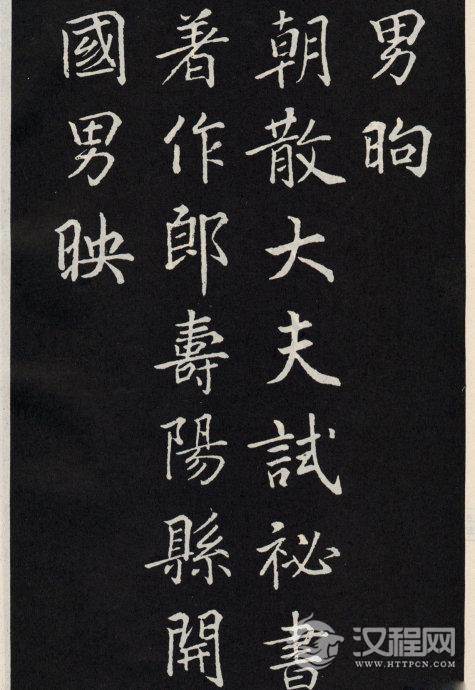 男昫
朝散大夫試祕書
著作郎壽陽縣開
國男映
汉程网
WWW.HTTPCN.COM